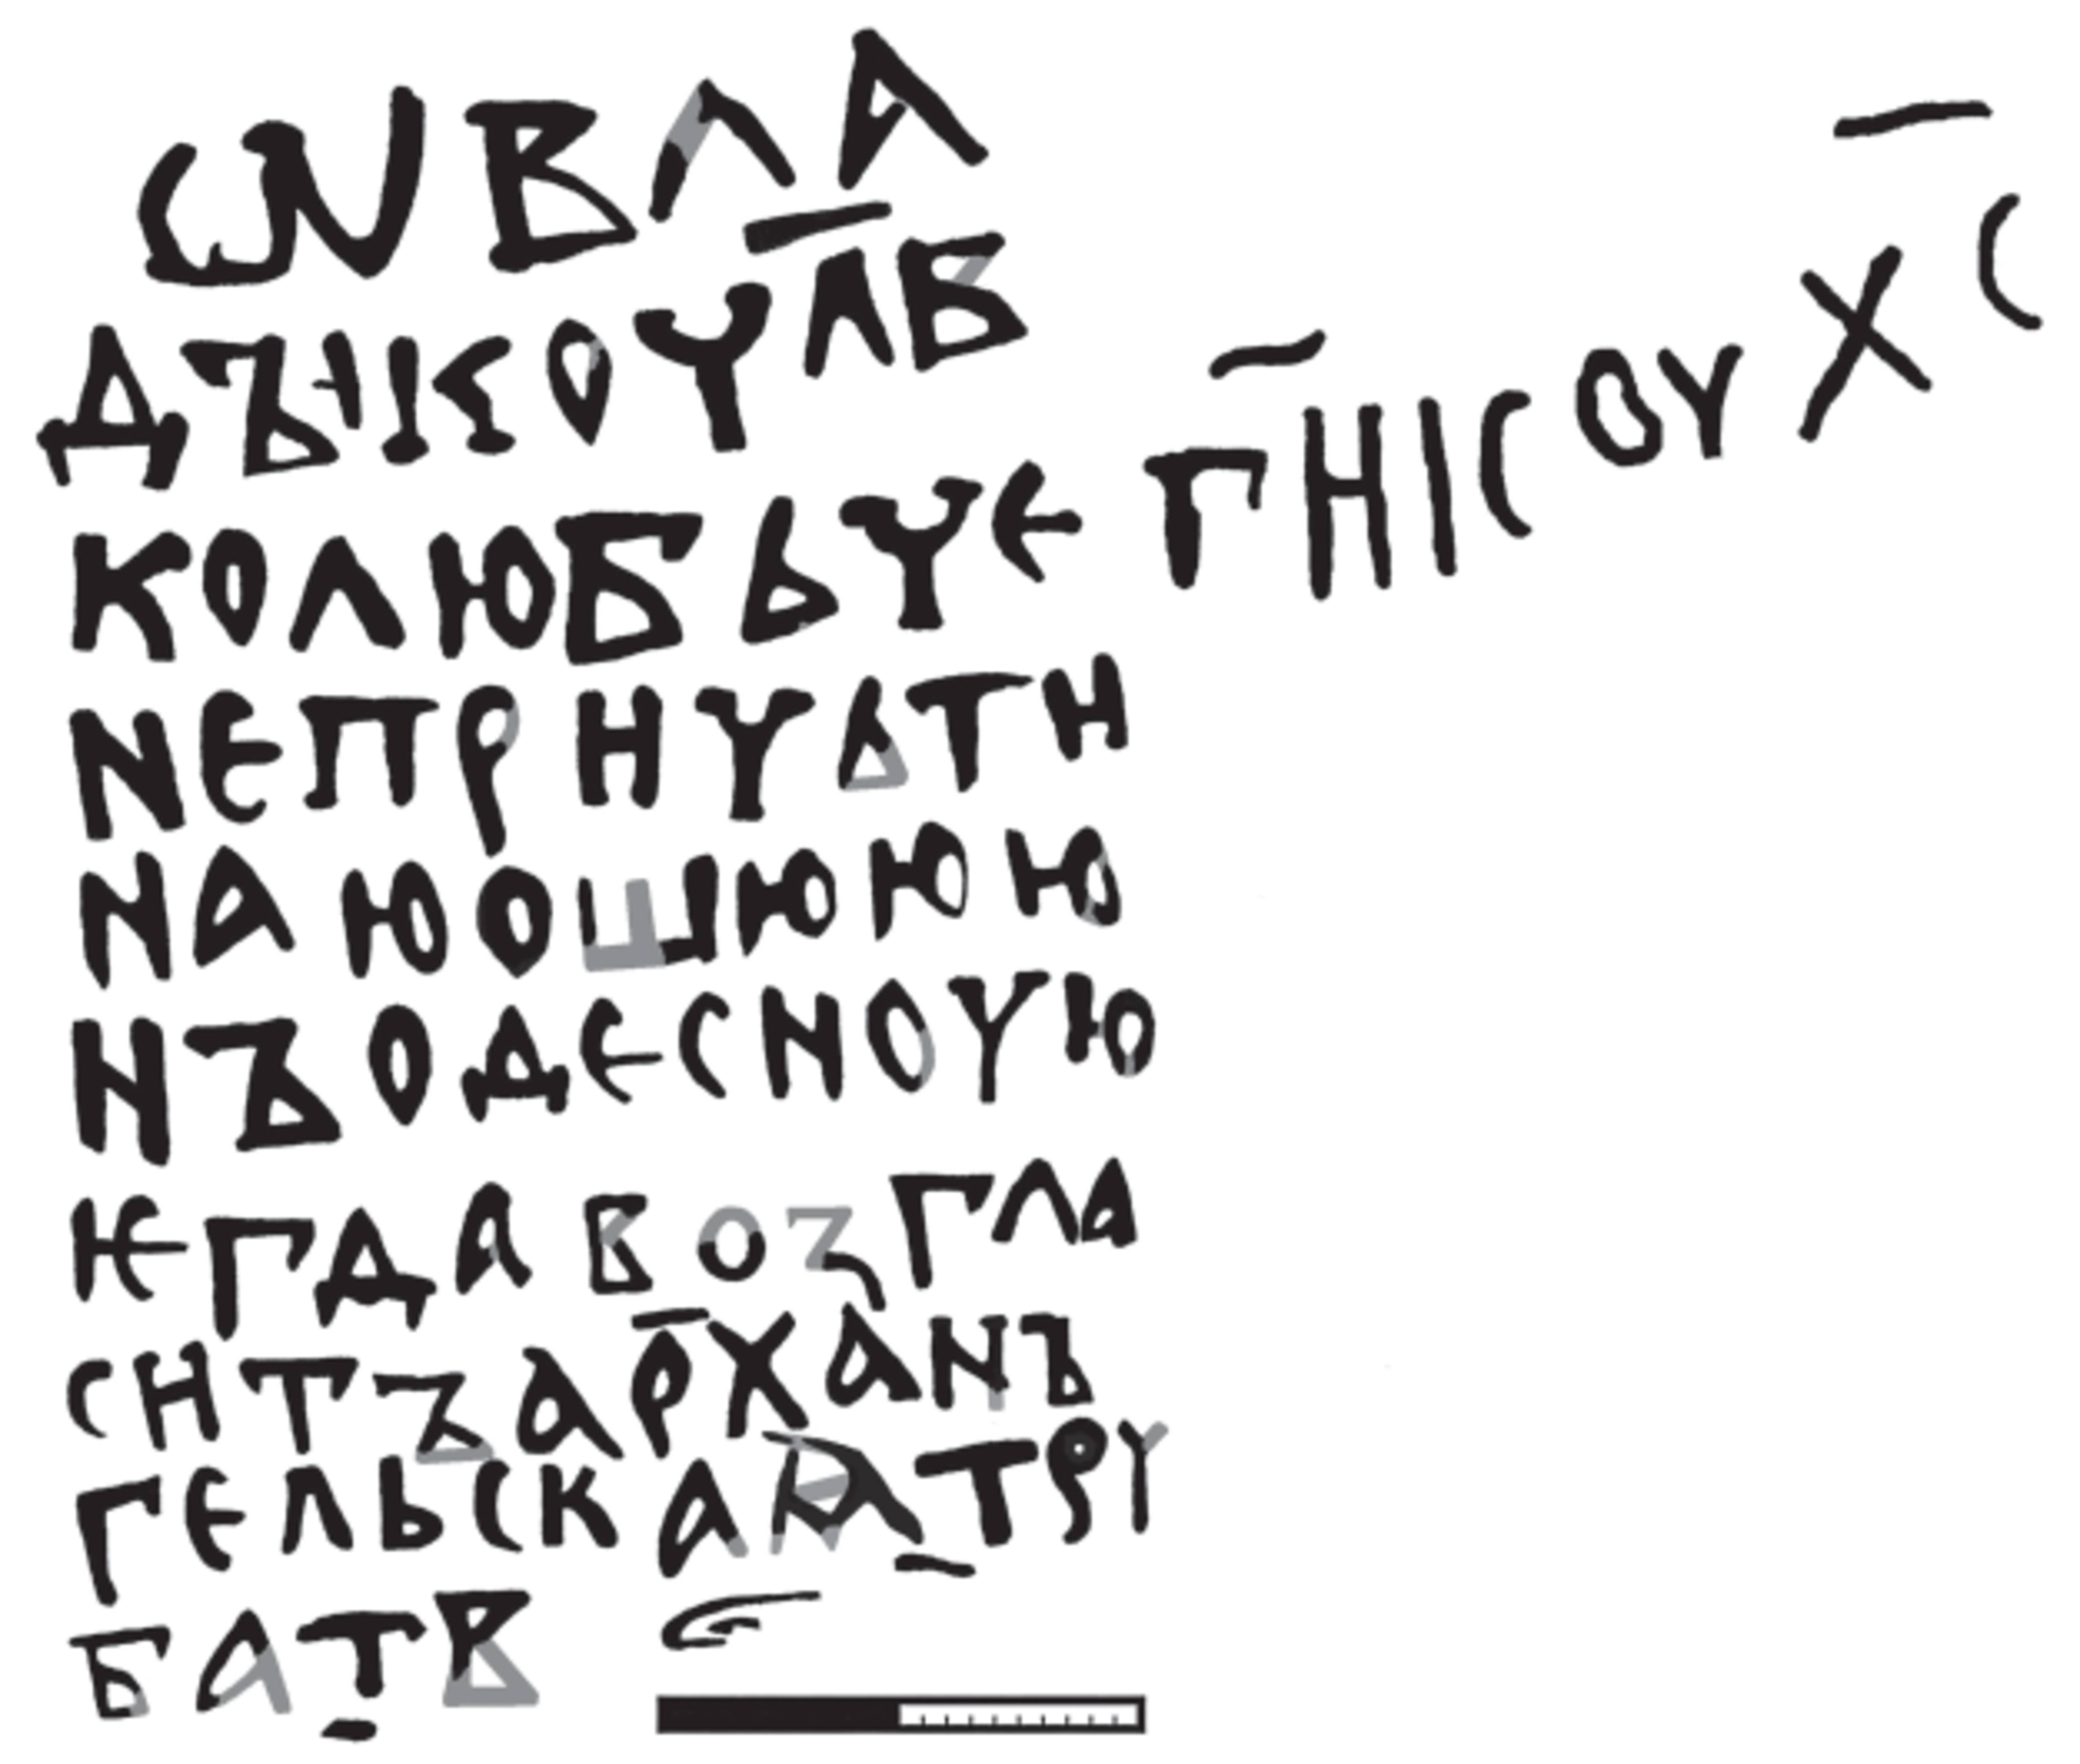 ѠВЛА
ДЪІКОЧЛ҃В
КОЛЮБЬЧЕ Г҃ИІСОУХ҃С
НЕПРИЧЬТИ
НАЮОШЮЮЮ
НЪОДЕСНОУЮ
ѤГДАВОЗГЛА
СИТЪАР҃ХАНЪ
ГЕЛЬСКАꙖТРѴ
БАТВ